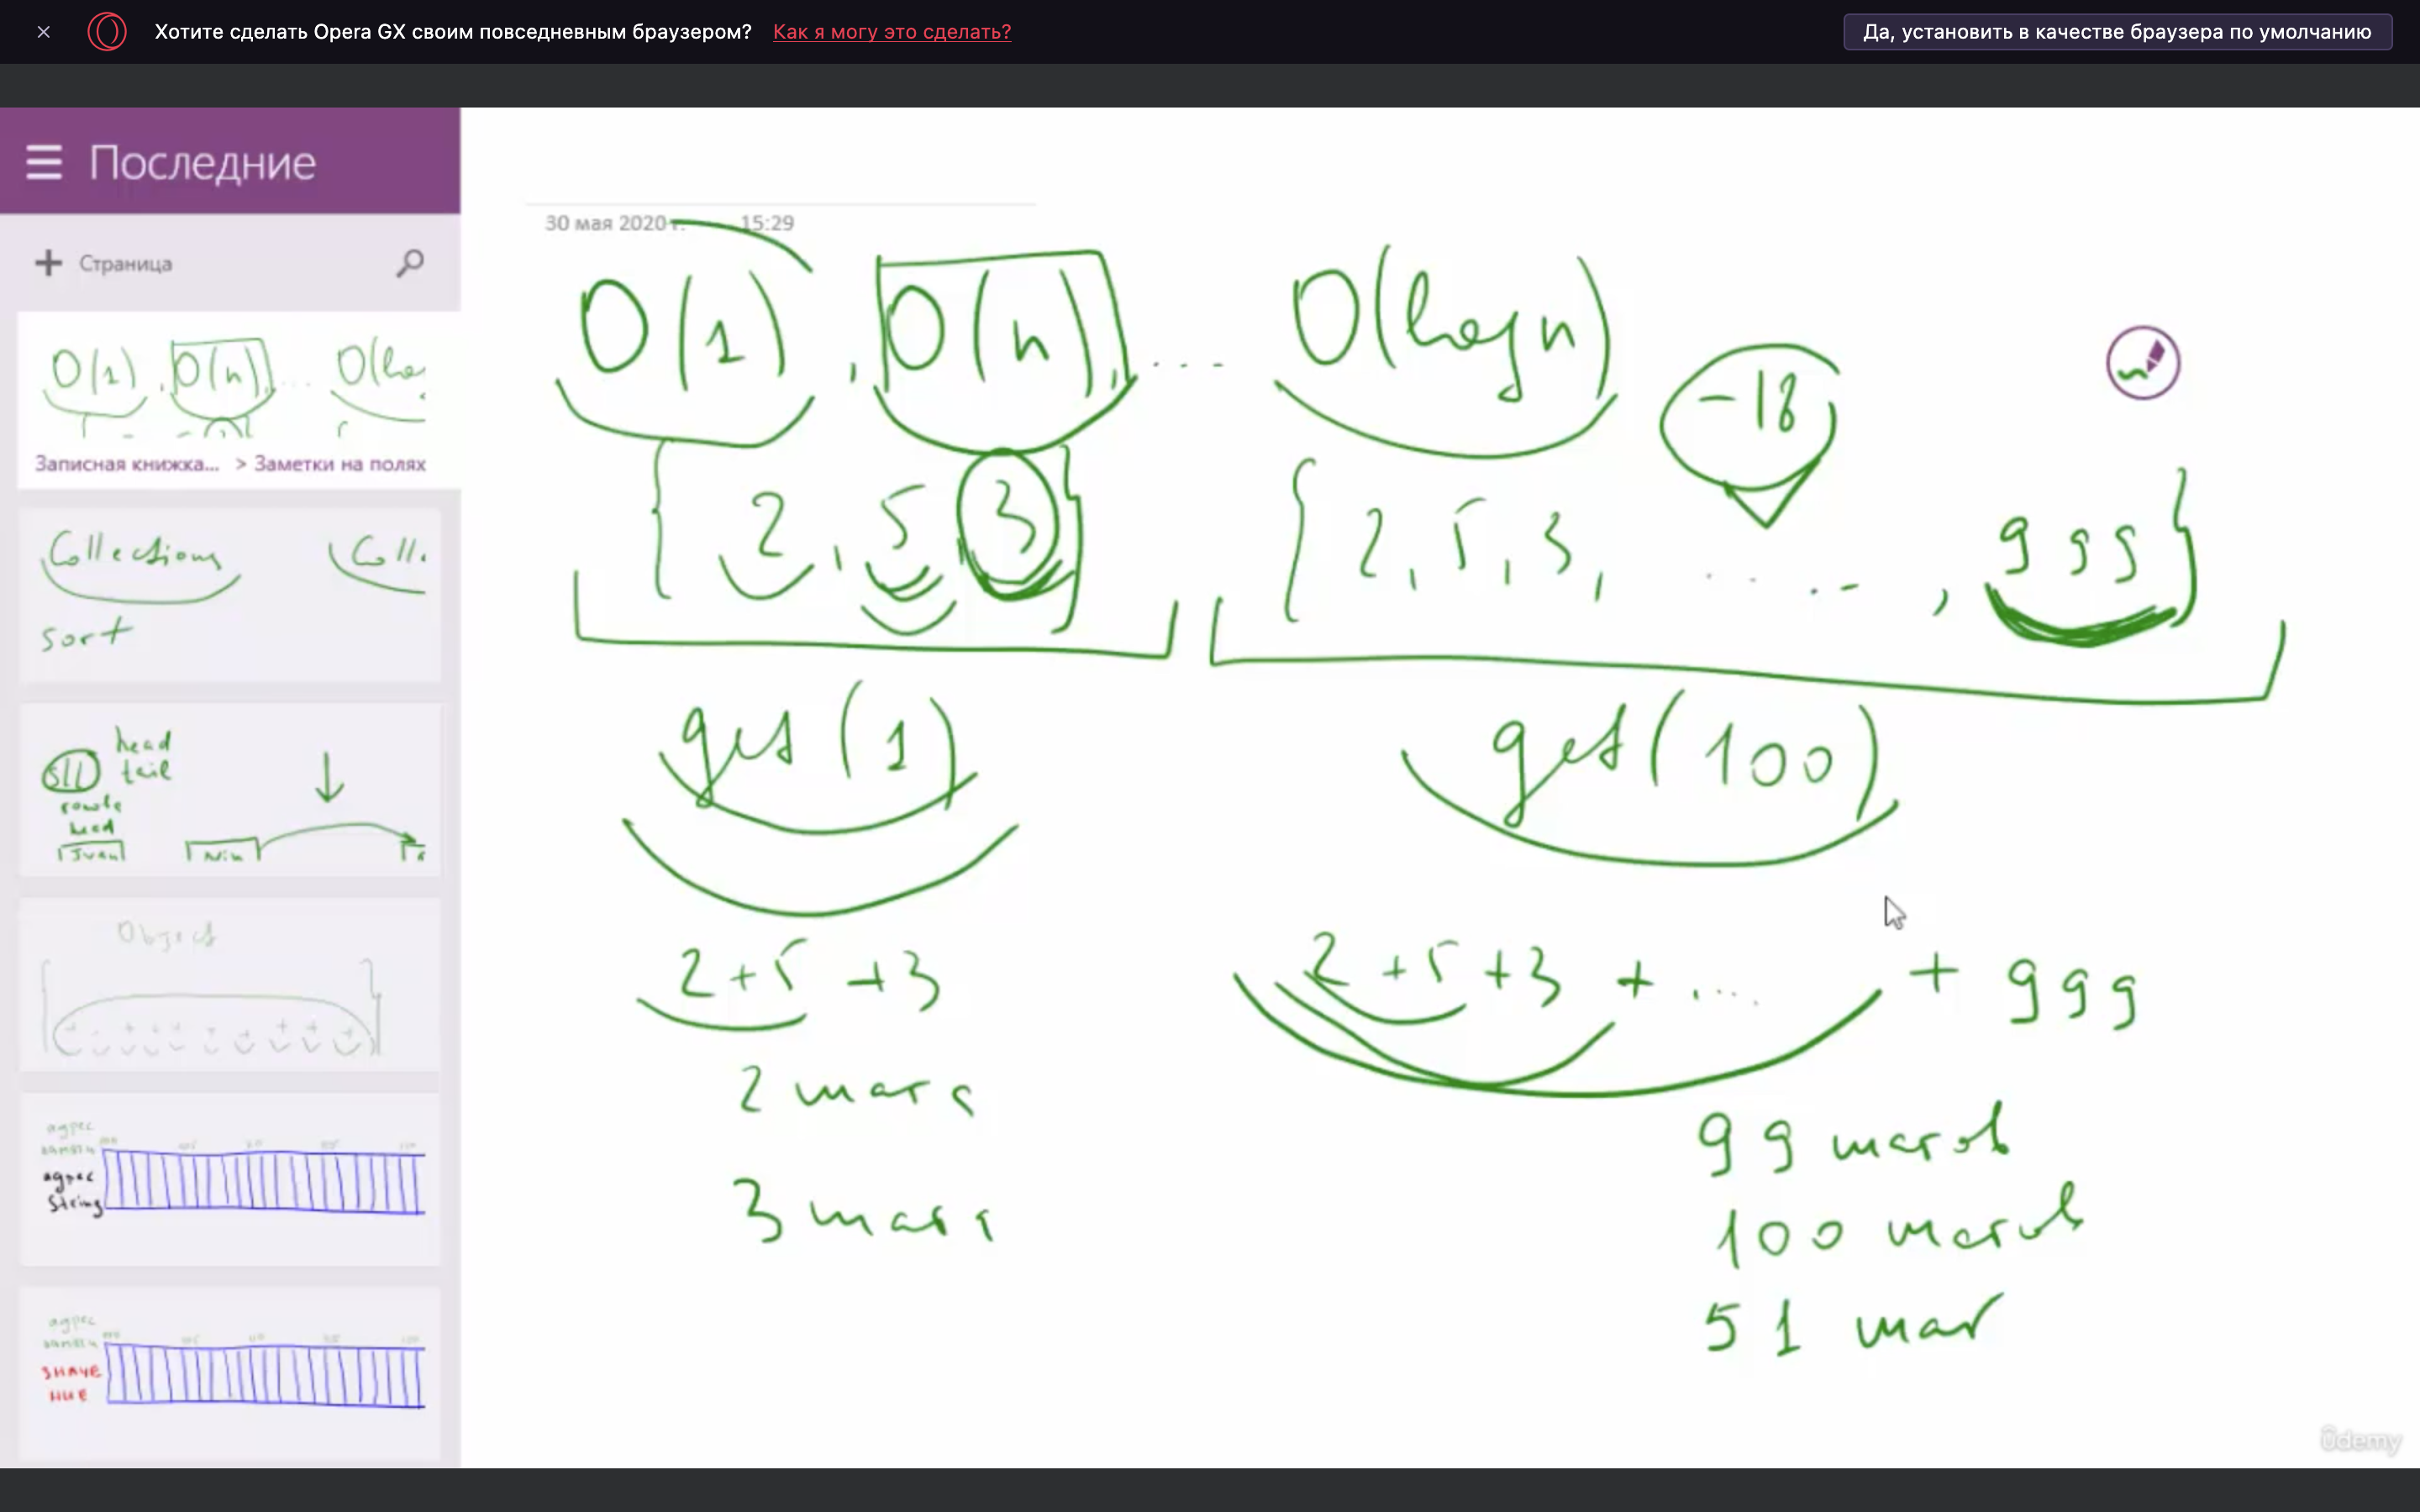 Хотите сделать Opera GX своим повседневным браузером? Как я могу это сделать? Да, установить в качестве браузера по умолчанию
Последние
Страница
O(1), O(n), ... O(lo
Записная книжка... > Заметки на полях
Collections Coll.
sort
sll head
tail
head
Object
адрес
адрес
String
адрес
ЗНАЧЕ
НИЕ
30 мая 2020 г. 15:29
O(1), O(n), .... O(log n)
-18
{2, 5, 3} {2, 5, 3, ....., 999}
get(1) get(100)
2+5+3 2+5+3+.... + 999
2 шага
3 шага
99 шагов
100 шагов
51 шаг
ûdemy